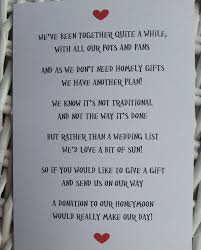 WE'VE BEEN TOGETHER QUITE A WHILE,
WITH ALL OUR POTS AND PANS
AND AS WE DON'T NEED HOMELY GIFTS
WE HAVE ANOTHER PLAN!
WE KNOW IT'S NOT TRADITIONAL
AND NOT THE WAY IT'S DONE
BUT RATHER THAN A WEDDING LIST
WE'D LOVE A BIT OF SUN!
SO IF YOU WOULD LIKE TO GIVE A GIFT
AND SEND US ON OUR WAY
A DONATION TO OUR HONEYMOON
WOULD REALLY MAKE OUR DAY!